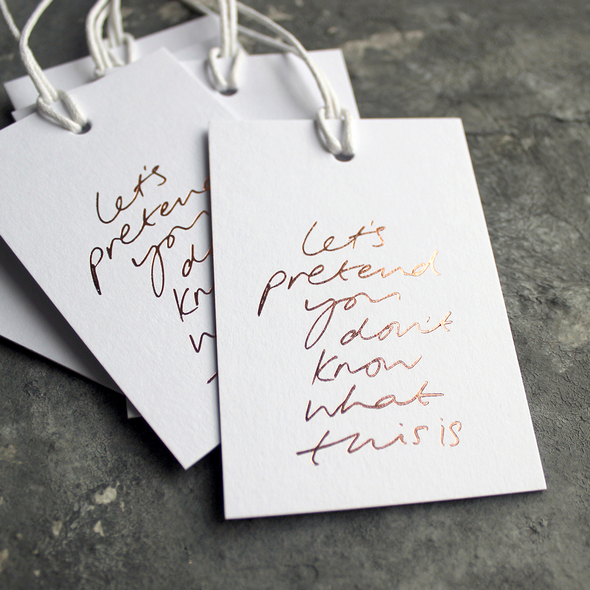 let's
pretend
you
don't
know
what
this is
let's
pretend
you
d
kn
w